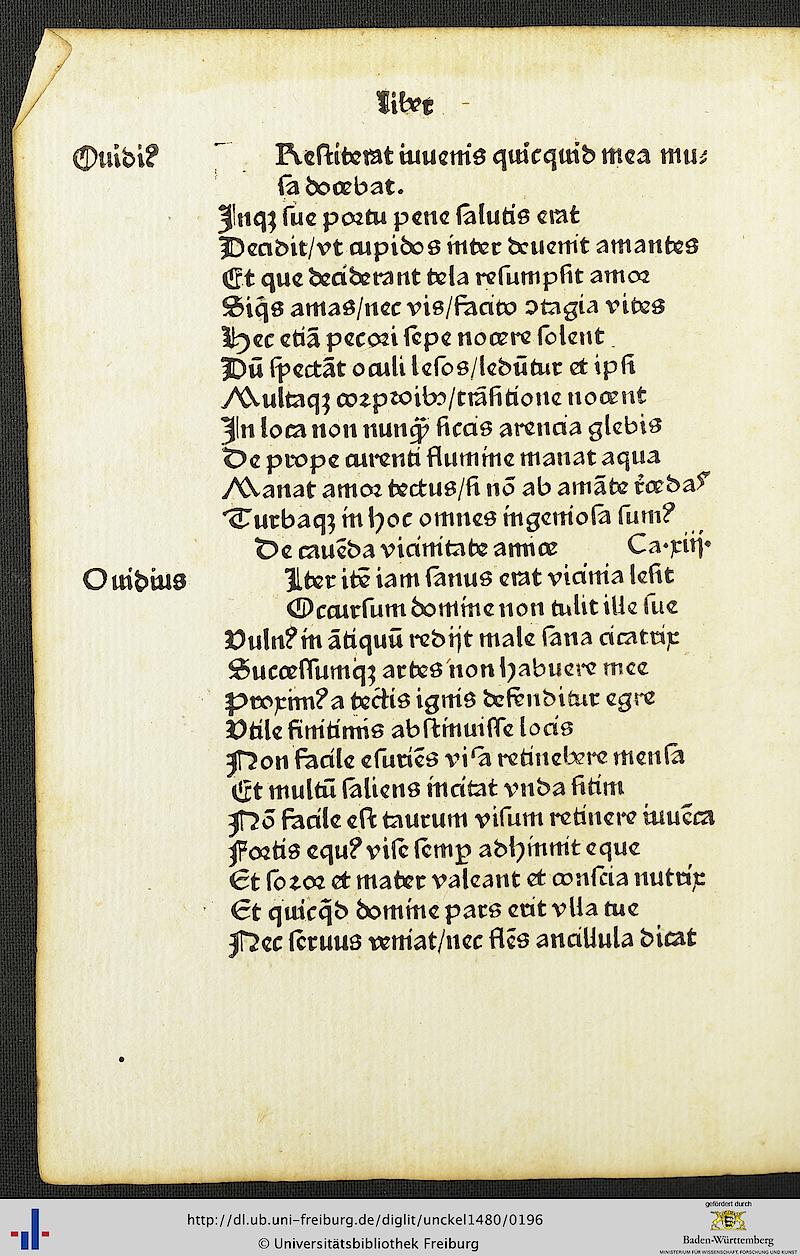 liber
Ouidiꝰ
Restiterat iuuenis quicquid mea mu⸗
sa docebat.
Inqꝫ sue portu pene salutis erat
Decidit/vt cupidos inter deuenit amantes
Et que deciderant tela resumpsit amor
Siq̃s amas/nec vis/facito ↄtagia vites
Hec etiã pecori sepe nocere solent
Dũ spectãt oculi lesos/ledũtur et ipsi
Multaqꝫ corporibꝰ/trãsitione nocent
In loca non nunqꝫ̃ siccis arencia glebis
De prope curenti flumine manat aqua
Manat amor tectus/si nõ ab amãte r̃cedaſ
Turbaqꝫ in hoc omnes ingeniosa sumꝰ
De cauẽda vicinitate amice Ca.xiij.
Ouidius
Iter itẽ iam sanus erat vicinia lesit
Occursum domine non tulit ille sue
Vulnꝰ in ãtiquũ redijt male sana cicatrix
Successumqꝫ artes non habuere mee
Proximꝰ a tectis ignis defenditur egre
Vtile finitimis abstinuisse locis
Non facile esuriẽs visa retinebere mensa
Et multũ saliens incitat vnda sitim
Nõ facile est taurum visum retinere iuuẽca
Fortis equꝰ vise semꝑ adhinnit eque
Et soror et mater valeant et conscia nutrix
Et quicq̃d domine pars erit vlla tue
Nec seruus veniat/nec flẽs ancillula dicat
http://dl.ub.uni-freiburg.de/diglit/unckel1480/0196
© Universitätsbibliothek Freiburg
gefördert durch
Baden-Württemberg
MINISTERIUM FÜR WISSENSCHAFT, FORSCHUNG UND KUNST